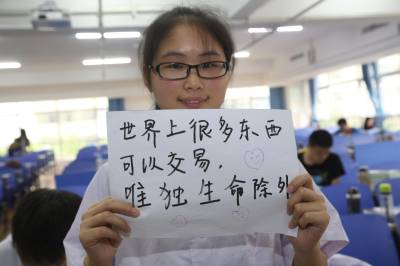 世界上很多东西
可以交易,
唯独生命除外